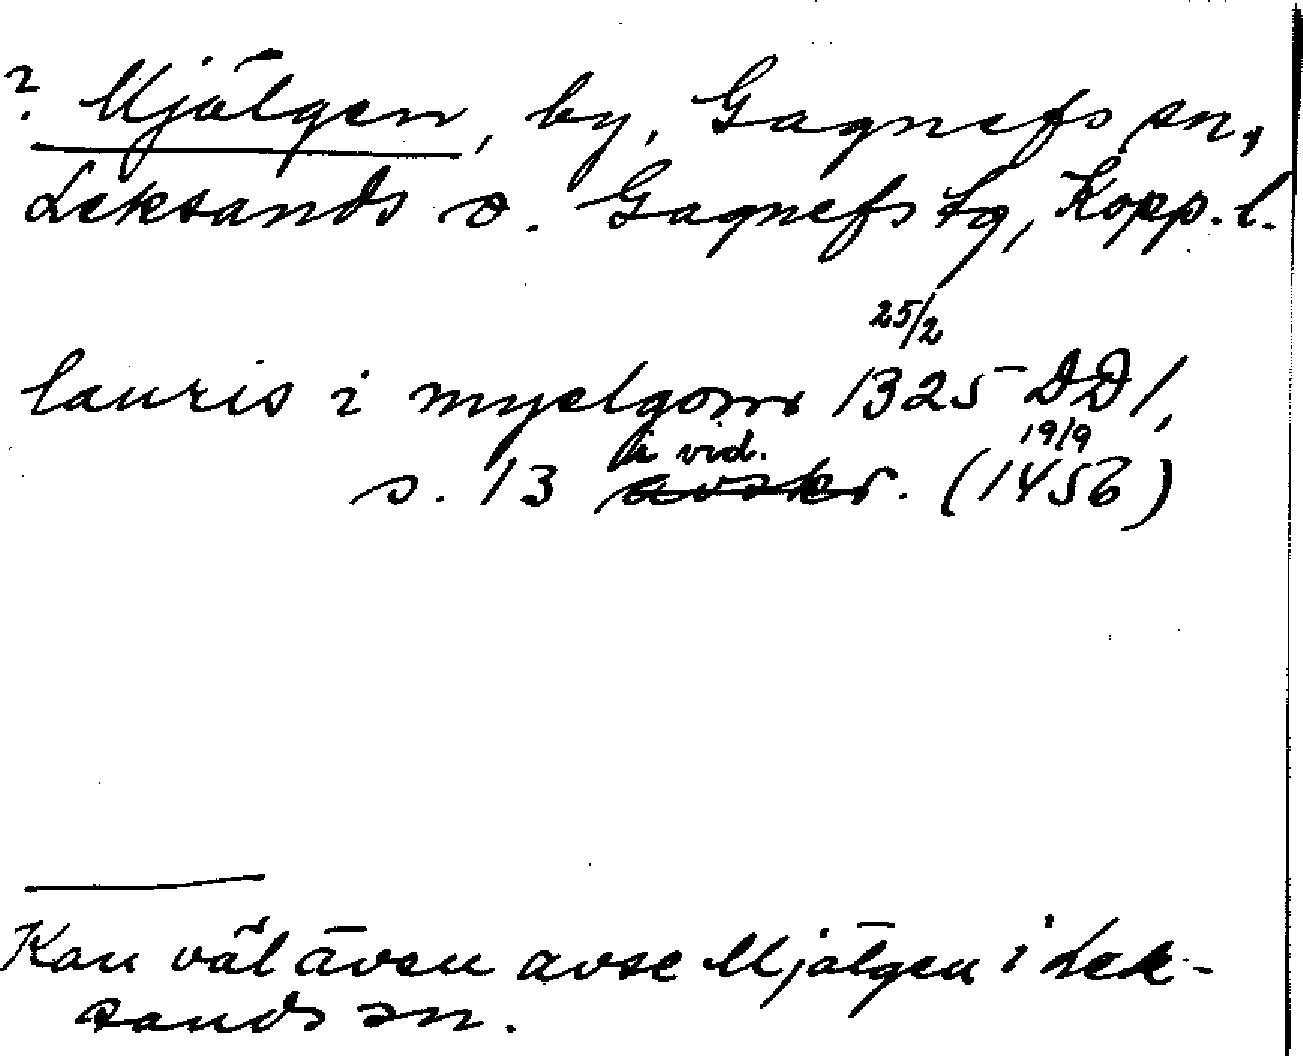 ? Mjälgen, by, Gagnefs sn,
Leksands o. Gagnefs tg, Kopp. l.
25/2
lauris i myelgom 1325 DD 1,
i vid. 19/9
s. 13 avskr. (1456)
Kan väl även avse Mjälgen i Lek-
sands sn.